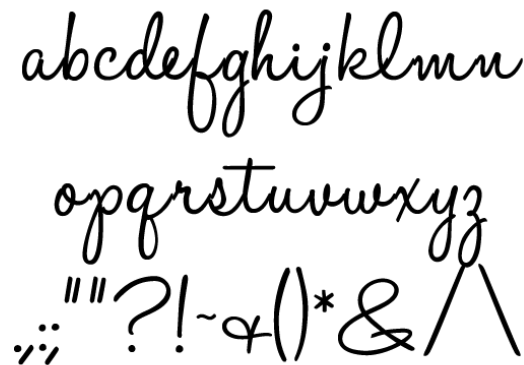 abcdefghijklmn
opqrstuvwxyz
.,:;""?!~&()*&/\